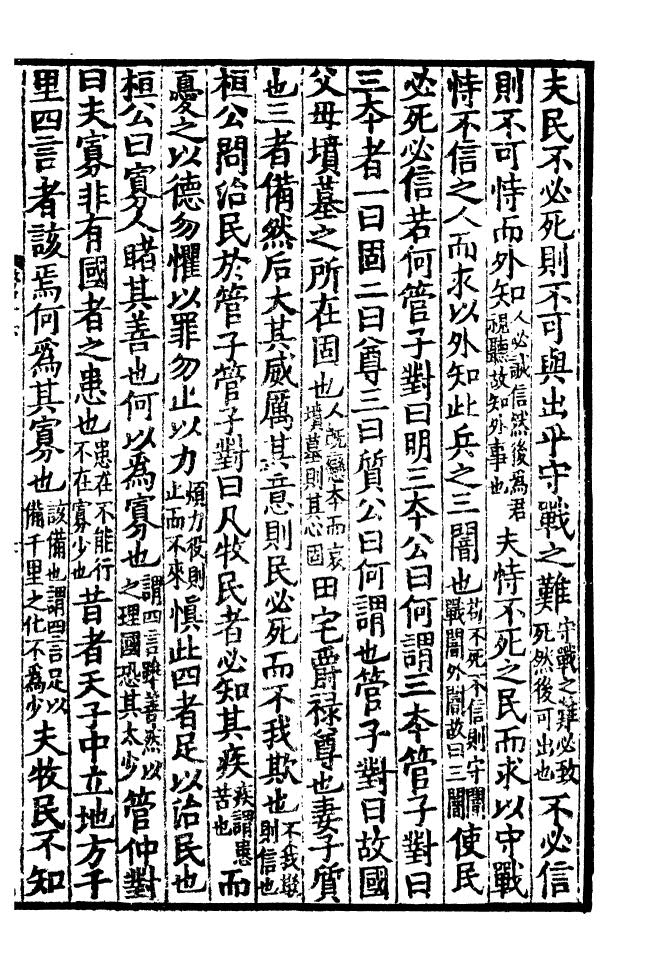 夫民不必死則不可與出乎守戰之難守戰之難必致死然後可出也不必信
則不可恃而外知人必誠信然後爲君視聽故知外事也夫恃不死之民而求以守戰
恃不信之人而求以外知此兵之三闇也苟不死不信則守闇戰闇外闇故曰三闇使民
必死必信若何管子對曰明三夲公曰何謂三夲管子對曰
三夲者一曰固二曰尊三曰質公曰何謂也管子對曰故國
父母墳墓之所在固也人既戀本而哀墳墓則其心固田宅爵祿尊也妻子質
也三者備然后大其威厲其意則民必死而不我欺也不我欺則信也
桓公問治民於管子管子對曰凡牧民者必知其疾疾謂患苦也而
憂之以德勿懼以罪勿止以力煩力役則止而不來愼此四者足以治民也
桓公曰寡人睹其善也何以爲寡也謂四言雖善然以之理國恐其太少管仲對
曰夫寡非有國者之患也患在不能行不在寡少也昔者天子中立地方千
里四言者該焉何爲其寡也該備也謂四言足以備千里之化不爲少夫牧民不知